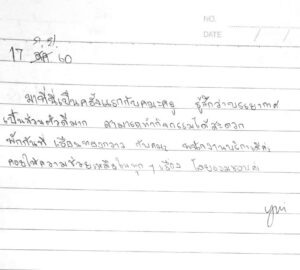 NO.
DATE
ก.ย.
17 60
มาที่นี่เป็นครั้งแรกกับคณะครู รู้สึกว่าบรรยากาศ
เป็นส่วนตัวดีมาก สามารถทำกิจกรรมได้สะดวก
พักกันที่ เรือนทองกวาว กับคณะ พนักงานบริการดีค่ะ
คอยให้ความช่วยเหลือในทุก ๆ เรื่อง โดยรวมชอบค่ะ